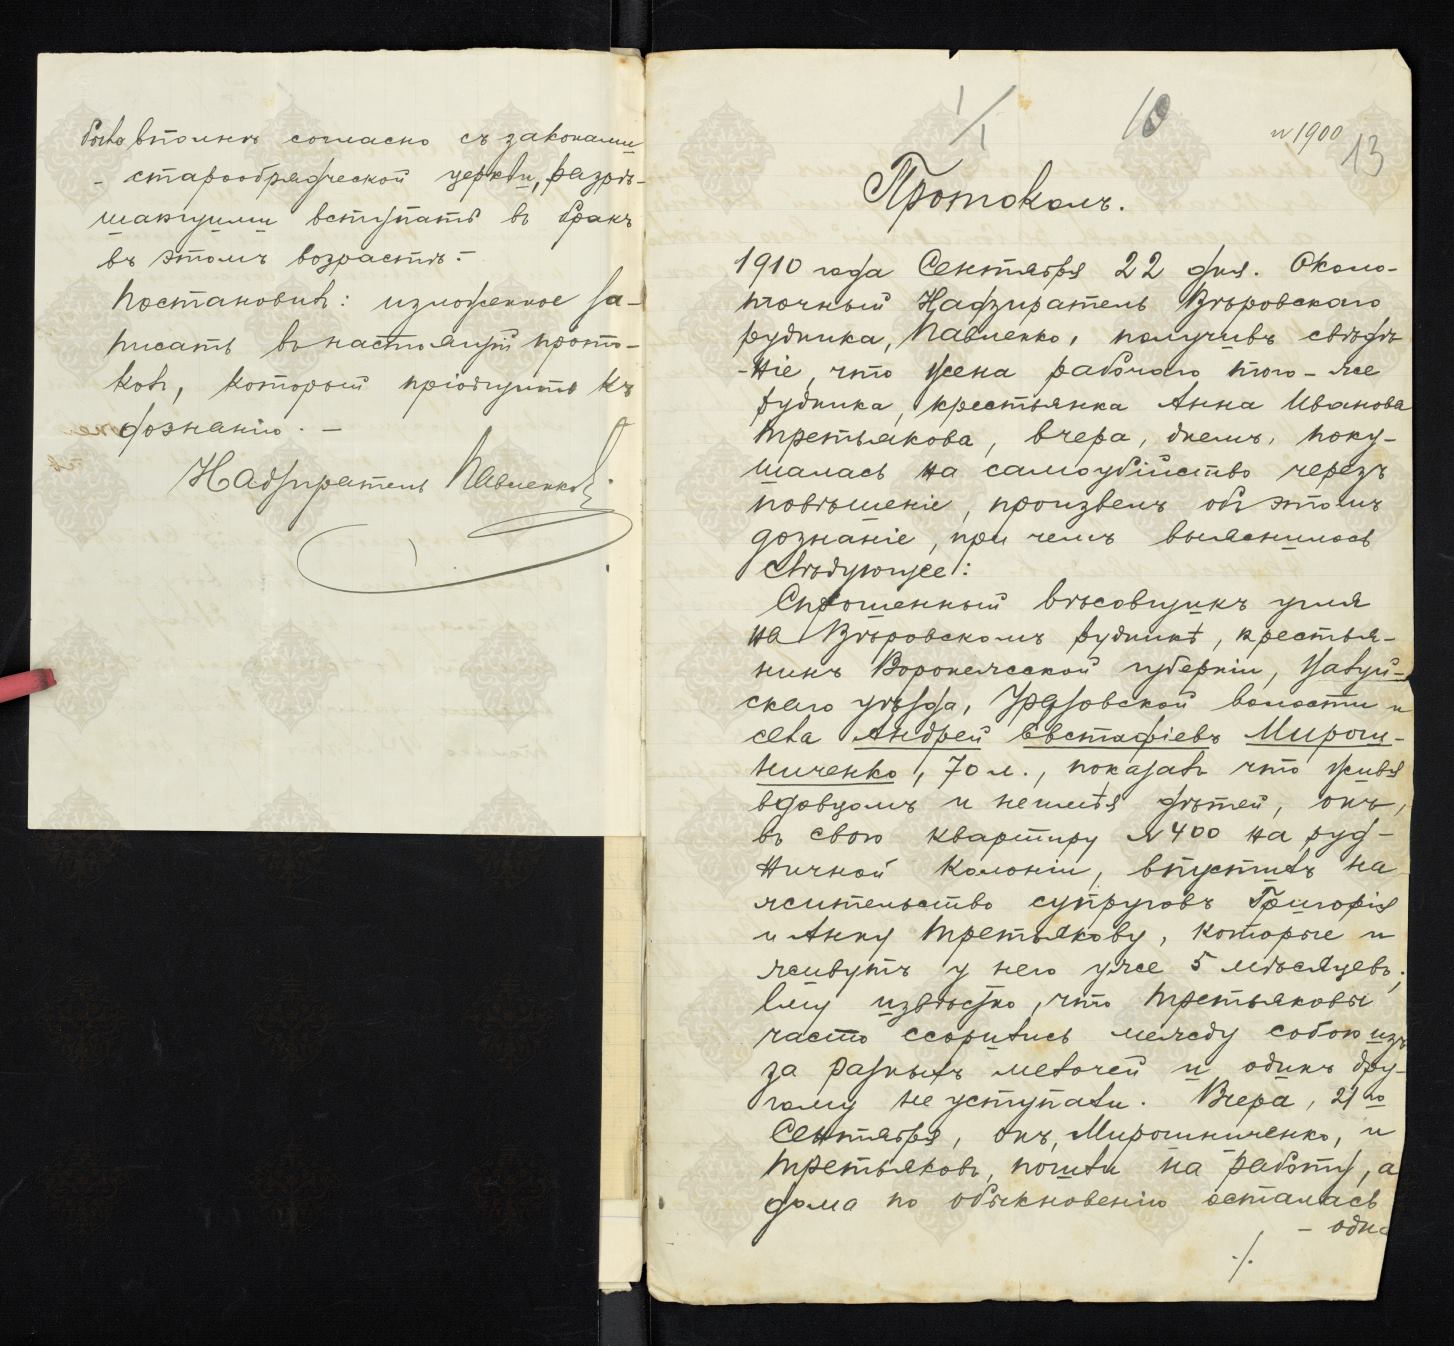 была вполнѣ согласно съ законами
- старообрядческой церкви, разрѣ-
шающими вступать въ бракъ
въ этомъ возрастѣ.-
Постановилъ: изложенное за-
писать въ настоящій прото-
колъ, который пріобщить къ
дознанію. -
Надзиратель Павленко
1/1
10
№ 1900
13
Протоколъ.
1910 года Сентября 22 дня. Около-
точный Надзиратель Вѣровскаго
рудника, Павленко, получивъ свѣдѣ-
-ніе, что жена рабочаго того-же
рудника, крестьянка Анна Иванова
Третьякова, вчера, днемъ, поку-
шалась на самоубійство черезъ
повѣшеніе, произвелъ объ этомъ
дознаніе, при чемъ выяснилось
слѣдующее:
Спрошенный вѣсовщикъ угля
на Вѣровскомъ рудникѣ, крестья-
нинъ Воронежской губерніи, Валуй-
скаго уѣзда, Уразовской волости и
села Андрей Евстафіевъ Мирош-
ниченко, 70 л., показалъ что живя
вдовцомъ и неимѣя дѣтей, онъ,
въ свою квартиру №400 на руд-
ничной колоніи, впустилъ на
жительство супруговъ Григорія
и Анну Третьякову, которые и
живутъ у него уже 5 мѣсяцевъ;
ему извѣстно, что Третьяковы
часто ссорились между собою изъ
за разныхъ мелочей и одинъ дру-
гому не уступали. Вчера, 21 го
Сентября, онъ, Мирошниченко, и
Третьяковъ, пошли на работу, а
дома по обыкновенію осталась
- одна
./.